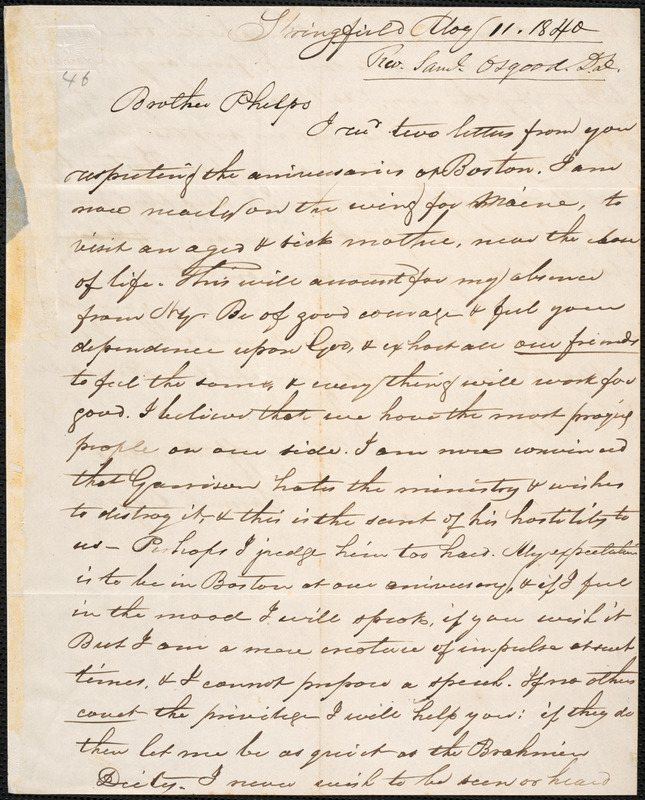 Springfield May 11. 1840
Rev. Saml. Osgood. D.d.
46
Brother Phelps
I recd two letters from you
respecting the aniversaries at Boston. I am
now nearly on the wing for Maine, to
visit an aged & sick mother, near the close
of life. This will account for my absence
from N.Y. Be of good courage & feel your
dependence upon God, & exhort all our friends
to feel the same, & every thing will work for
good. I believe that we have the most praying
people on our side. I am now convinced
that Garrison hates the ministry & wishes
to destroy it, & this is the secret of his hostility to
us - Perhaps I judge him too hard. My expectation
is to be in Boston at our aniversary, & if I feel
in the mood I will speak, if you wish it
But I am a mere creature of impulse at such
times, & I cannot prepare a speech. If no others
covet the privilege I will help you: if they do
then let me be as quiet as the Brahmin
Diety. I never wish to be seen or heard